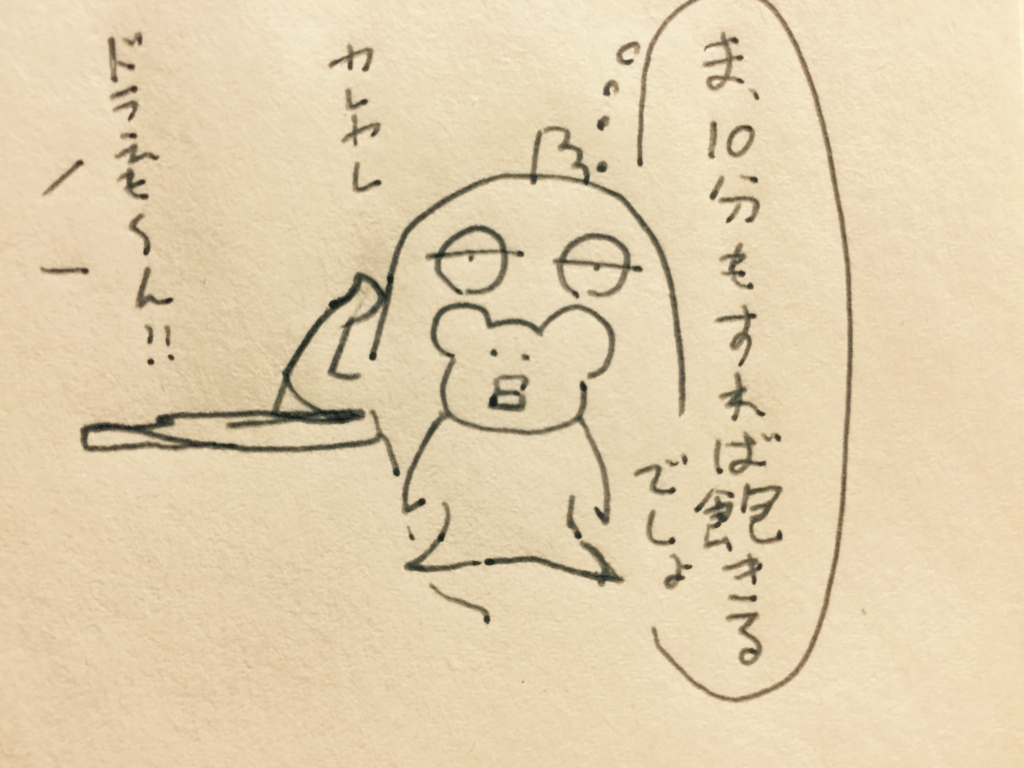 ま、10分もすれば飽きる
でしょ
ヤレヤレ
ドラえも〜ん!!